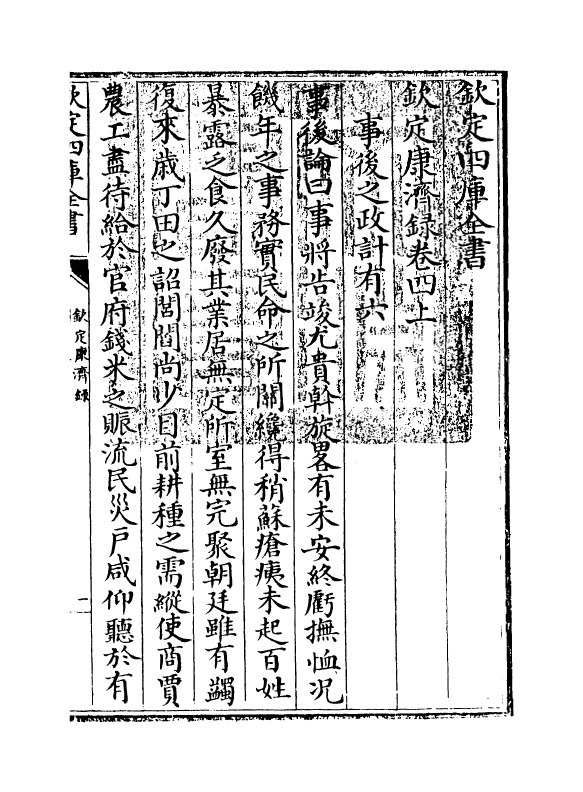 欽定四庫全書
欽定康濟録卷四上
事後之政計有六
事後論曰事將告竣尤貴斡旋畧有未安終虧撫恤况
饑年之事務實民命之所關纔得稍蘇瘡痍未起百姓
暴露乏食久廢其業居無定所室無完聚朝廷雖有蠲
復來歳丁田之詔閭閻尚少目前耕種之需縱使商賈
農工盡待給於官府錢米之賑流民災戶咸仰聽於有
欽定四庫全書
欽定康濟録
一